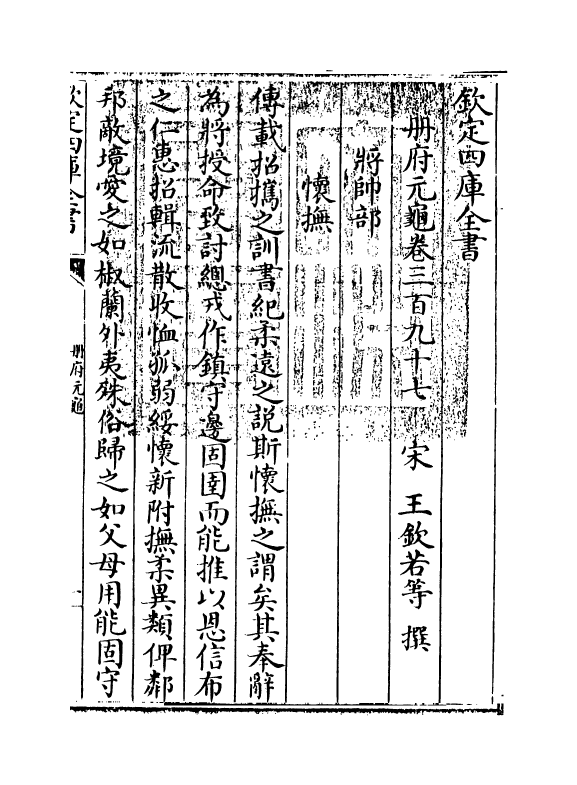 欽定四庫全書
册府元龜卷三百九十七
宋 王欽若等 撰
將帥部
懷撫
傳載招攜之訓書紀柔遠之說斯懷撫之謂矣其奉辭
為將授命致討總戎作鎮守邊固圉而能推以恩信布
之仁惠招輯流散收恤孤弱綏懷新附撫柔異類俾鄰
邦敵境愛之如椒蘭外夷殊俗歸之如父母用能固守
欽定四庫全書
册府元龜
一